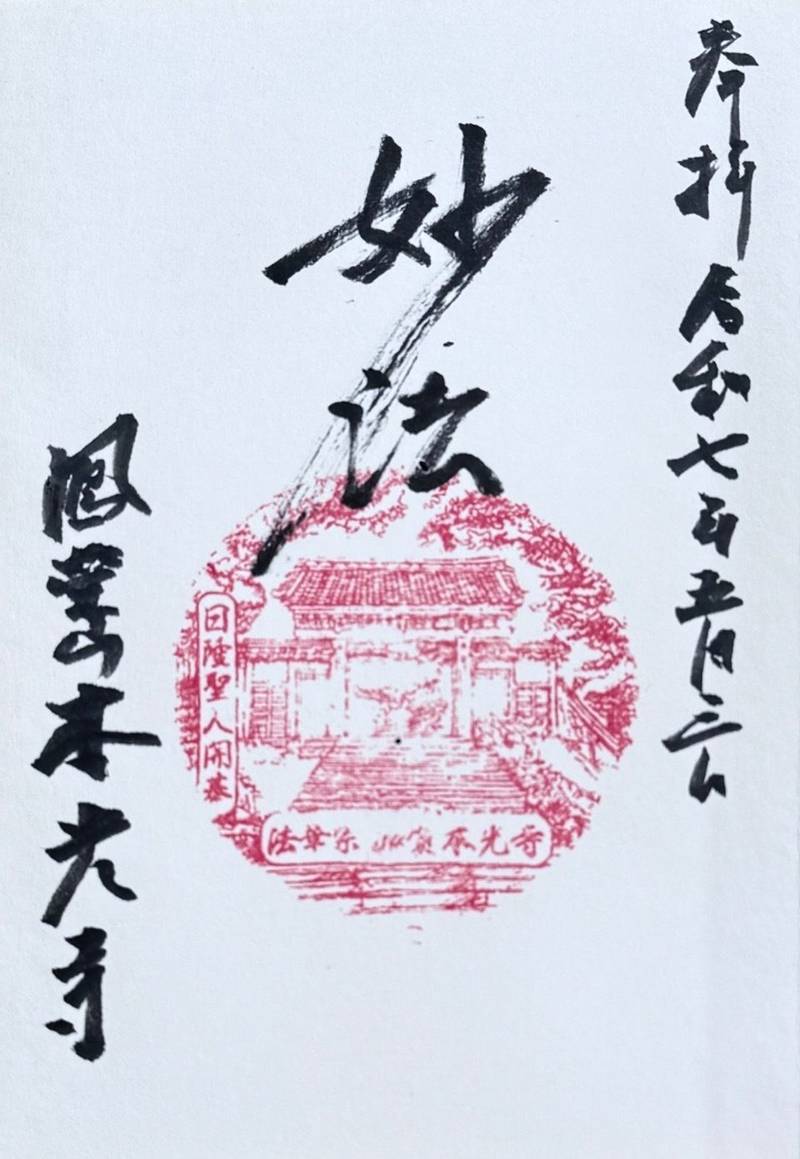 奉拝 令和七年五月三日
妙法
鳳 山本光寺
日隆聖人開基
法華宗 本光寺